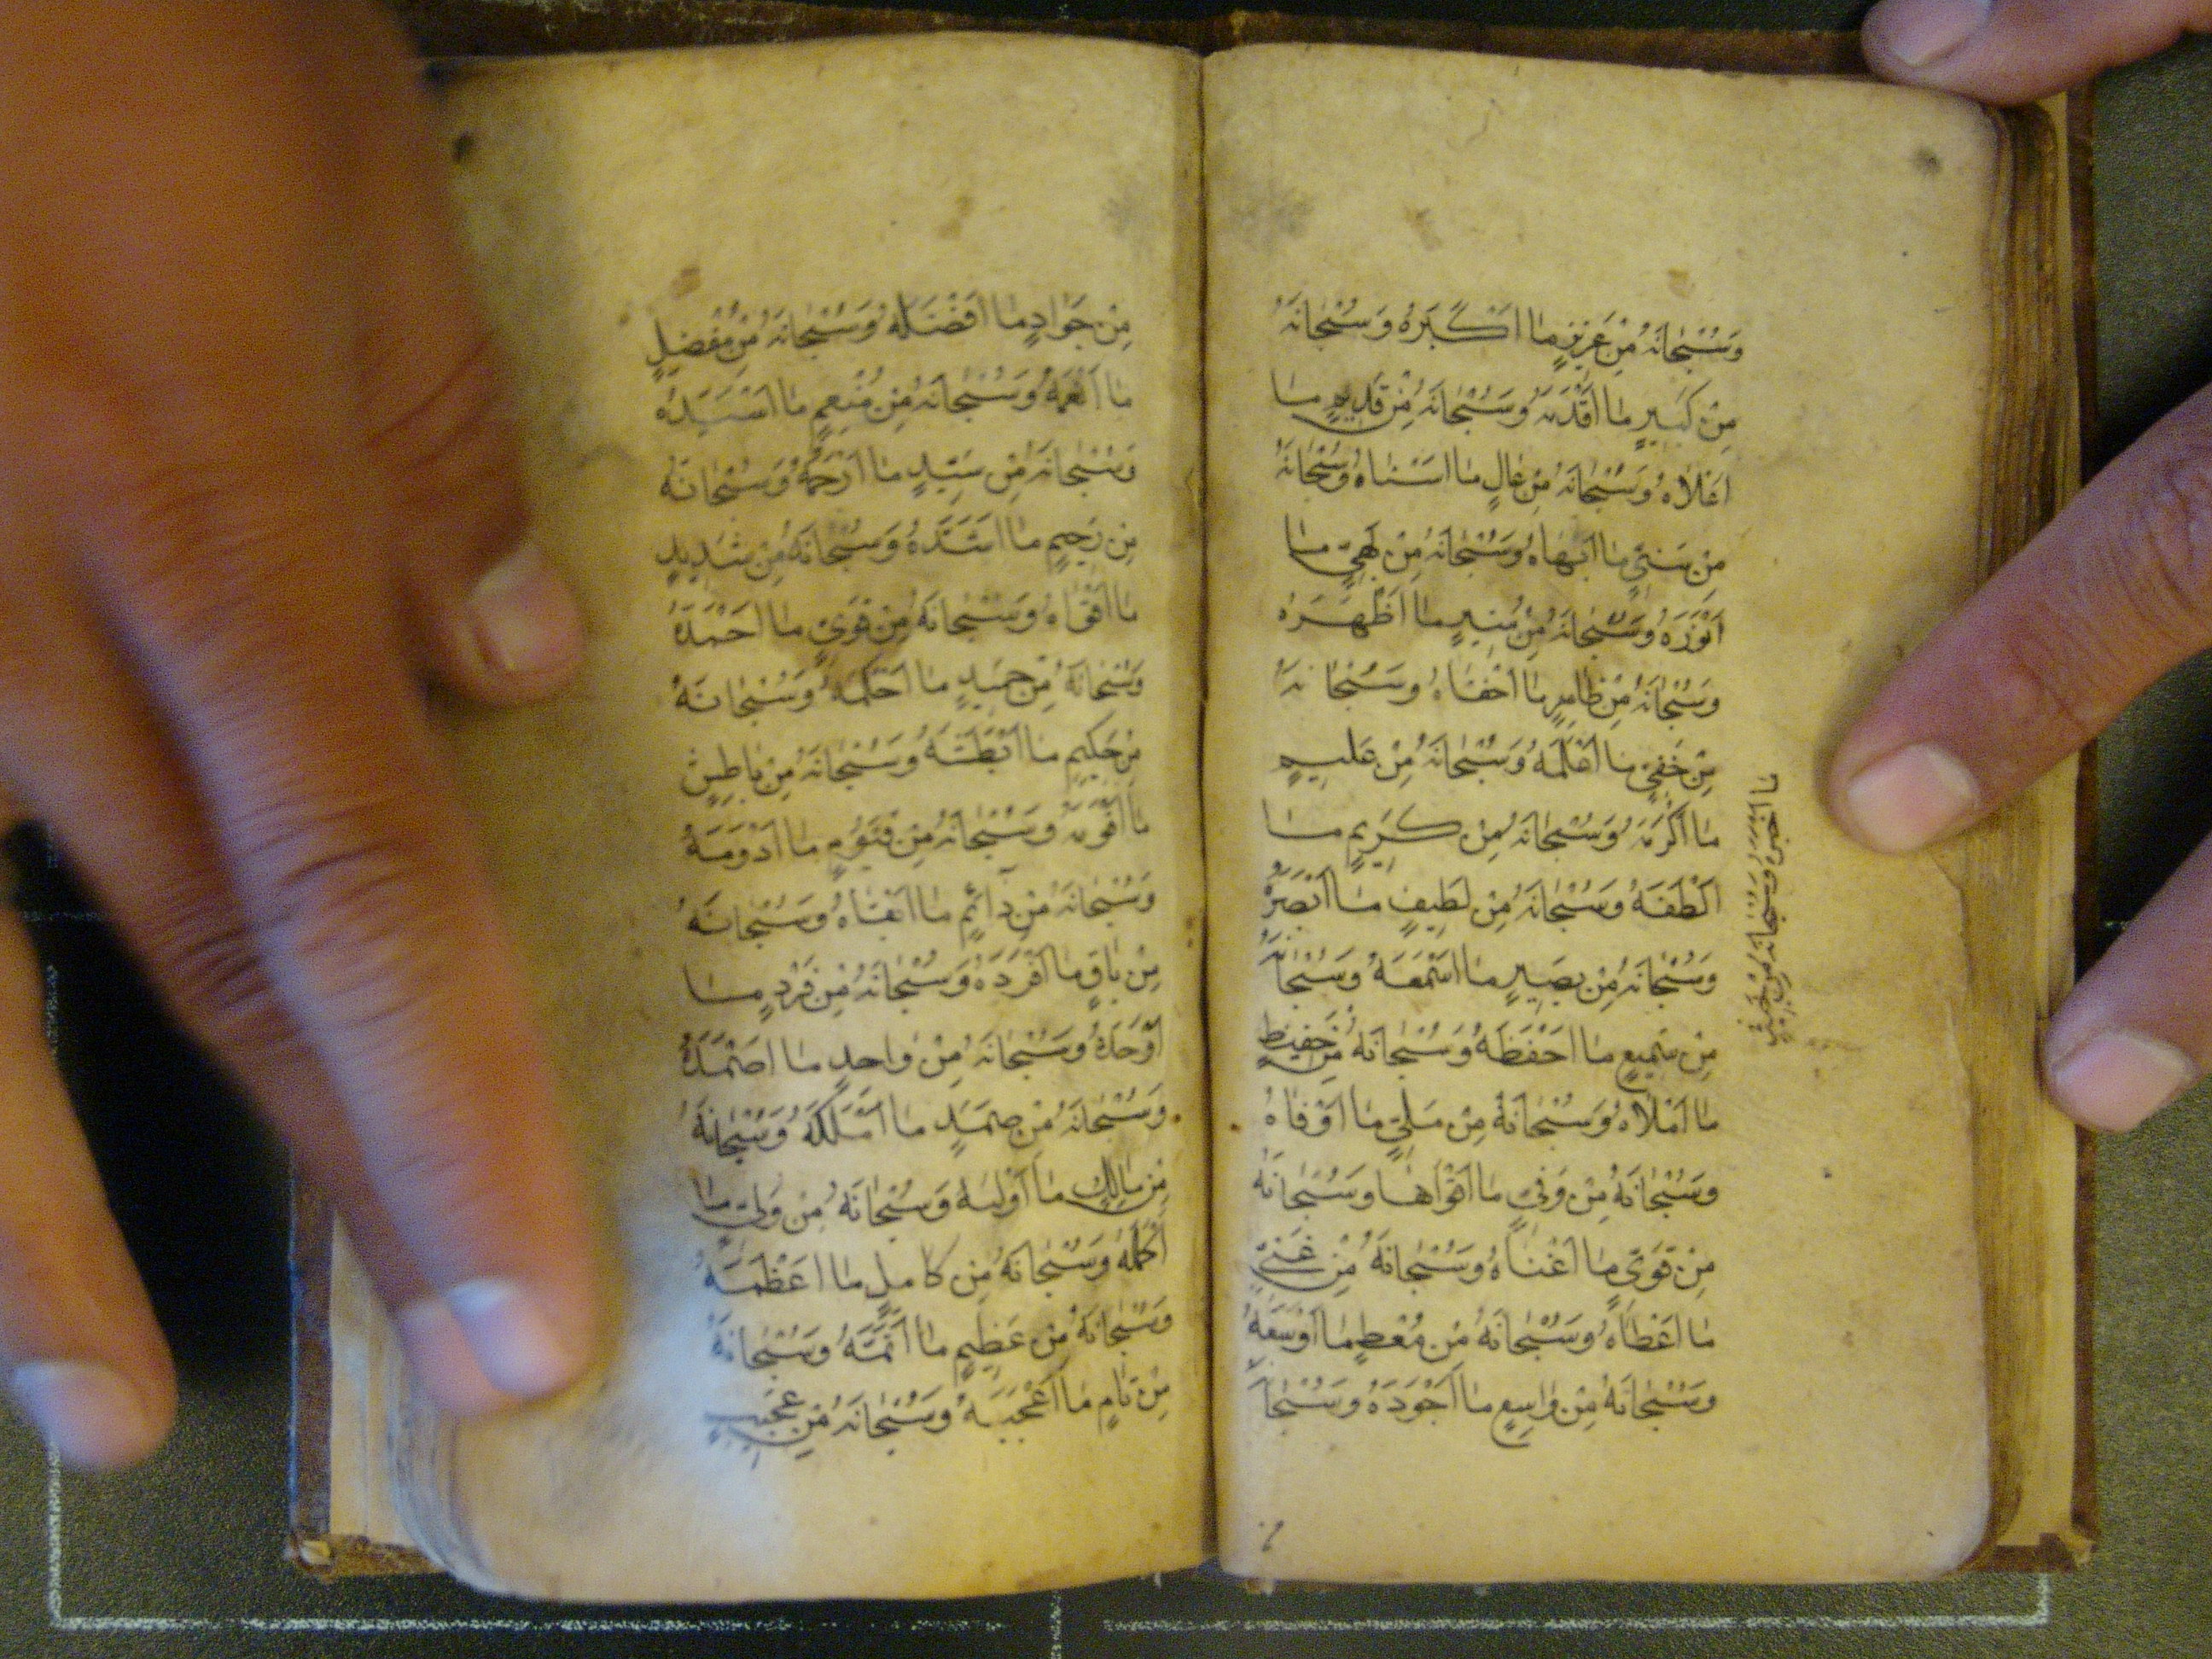 وَسُبْحَانَهُ مِنْ عَزِيزٍ مَا اَكْبَرَهُ وَسُبْحَانَهُ
مِنْ كَبِيرٍ مَا اَقْدَمَهُ وَسُبْحَانَهُ مِنْ قَدِيمٍ مَا
اَعْلَاهُ وَسُبْحَانَهُ مِنْ عَالٍ مَا اَسْنَاهُ وَسُبْحَانَهُ
مِنْ سَنِيٍّ مَا اَبْهَاهُ وَسُبْحَانَهُ مِنْ بَهِيٍّ مَا
اَنْوَرَهُ وَسُبْحَانَهُ مِنْ مُنِيرٍ مَا اَظْهَرَهُ
وَسُبْحَانَهُ مِنْ ظَاهِرٍ مَا اَخْفَاهُ وَسُبْحَانَهُ
مِنْ خَفِيٍّ مَا اَعْلَمَهُ وَسُبْحَانَهُ مِنْ عَلِيمٍ
مَا اَكْرَمَهُ وَسُبْحَانَهُ مِنْ كَرِيمٍ مَا
اَلْطَفَهُ وَسُبْحَانَهُ مِنْ لَطِيفٍ مَا اَبْصَرَهُ
وَسُبْحَانَهُ مِنْ بَصِيرٍ مَا اَسْمَعَهُ وَسُبْحَانَهُ
مِنْ سَمِيعٍ مَا اَحْفَظَهُ وَسُبْحَانَهُ مِنْ حَفِيظٍ
مَا اَمْلَاهُ وَسُبْحَانَهُ مِنْ مَلِيٍّ مَا اَوْفَاهُ
وَسُبْحَانَهُ مِنْ وَفِيٍّ مَا اَقْوَاهَا وَسُبْحَانَهُ
مِنْ قَوِيٍّ مَا اَغْنَاهُ وَسُبْحَانَهُ مِنْ غَنِيٍّ
مَا اَعْطَاهُ وَسُبْحَانَهُ مِنْ مُعْطٍ مَا اَوْسَعَهُ
وَسُبْحَانَهُ مِنْ وَاسِعٍ مَا اَجْوَدَهُ وَسُبْحَانَهُ
وَسُبْحَانَهُ مِنْ
مِنْ جَوَادٍ مَا اَفْضَلَهُ وَسُبْحَانَهُ مِنْ مُفْضِلٍ
مَا اَنْعَمَهُ وَسُبْحَانَهُ مِنْ مُنْعِمٍ مَا اَسْيَدَهُ
وَسُبْحَانَهُ مِنْ سَيِّدٍ مَا اَرْحَمَهُ وَسُبْحَانَهُ
مِنْ رَحِيمٍ مَا اَشَدَّهُ وَسُبْحَانَهُ مِنْ شَدِيدٍ
مَا اَقْوَاهُ وَسُبْحَانَهُ مِنْ قَوِيٍّ مَا اَحْمَدَهُ
وَسُبْحَانَهُ مِنْ حَمِيدٍ مَا اَحْكَمَهُ وَسُبْحَانَهُ
مِنْ حَكِيمٍ مَا اَبْطَشَهُ وَسُبْحَانَهُ مِنْ بَاطِشٍ
مَا اَقْوَمَهُ وَسُبْحَانَهُ مِنْ قَيُّومٍ مَا اَدْوَمَهُ
وَسُبْحَانَهُ مِنْ دَآئِمٍ مَا اَبْقَاهُ وَسُبْحَانَهُ
مِنْ بَاقٍ مَا اَفْرَدَهُ وَسُبْحَانَهُ مِنْ فَرْدٍ مَا
اَوْحَدَهُ وَسُبْحَانَهُ مِنْ وَاحِدٍ مَا اَصْمَدَهُ
وَسُبْحَانَهُ مِنْ صَمَدٍ مَا اَمْلَكَهُ وَسُبْحَانَهُ
مِنْ مَالِكٍ مَا اَوْلَاهُ وَسُبْحَانَهُ مِنْ وَلِيٍّ مَا
اَكْمَلَهُ وَسُبْحَانَهُ مِنْ كَامِلٍ مَا اَعْظَمَهُ
وَسُبْحَانَهُ مِنْ عَظِيمٍ مَا اَتَمَّهُ وَسُبْحَانَهُ
مِنْ تَامٍ مَا اَعْجَبَهُ وَسُبْحَانَهُ مِنْ عَجِيبٍ